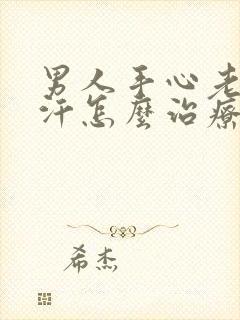 男人手心老
汗怎麼治療
希杰